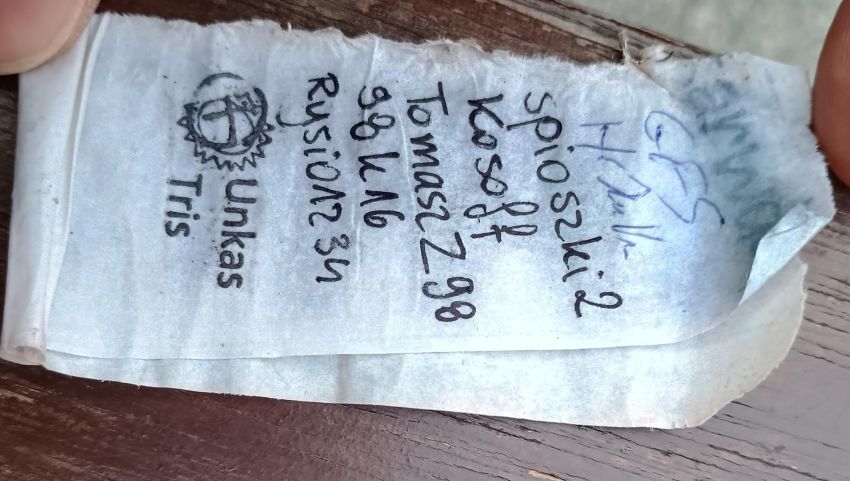 GFS
spioszki2
Kosoff
TomaszZ98
98k16
Rysio1234
Unkas
Tris